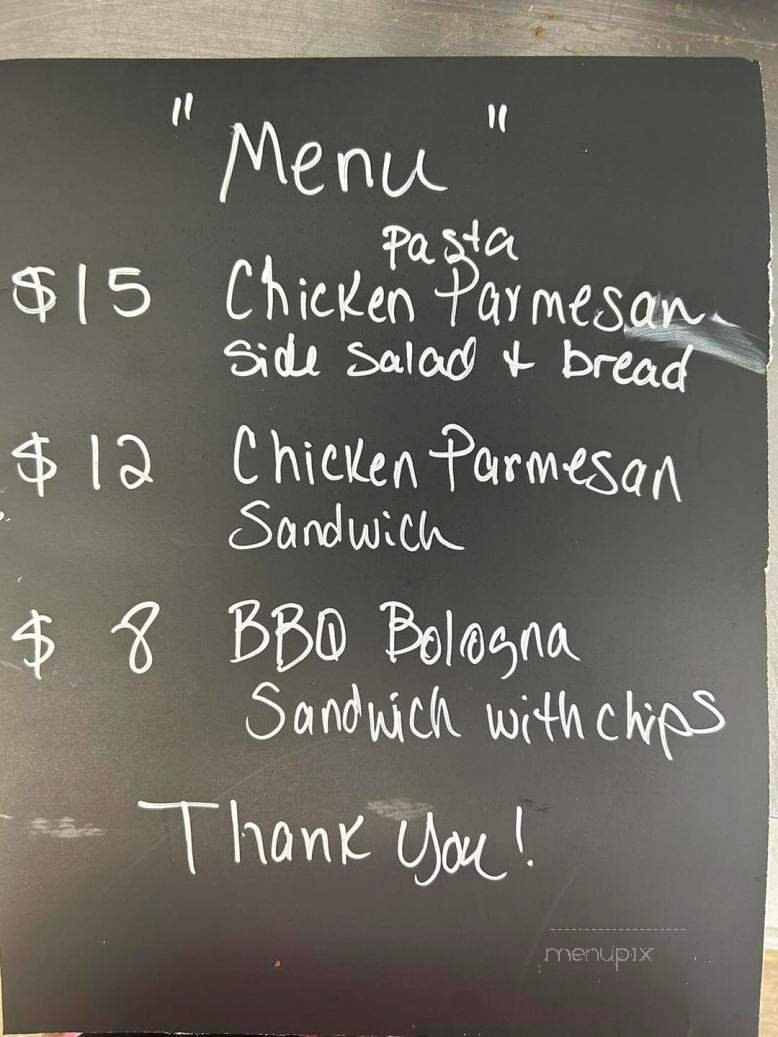 " Menu "
pasta
$15 Chicken Parmesan
side salad + bread
$12 Chicken Parmesan
Sandwich
$ 8 BBQ Bologna
Sandwich with chips
Thank you!
menupix